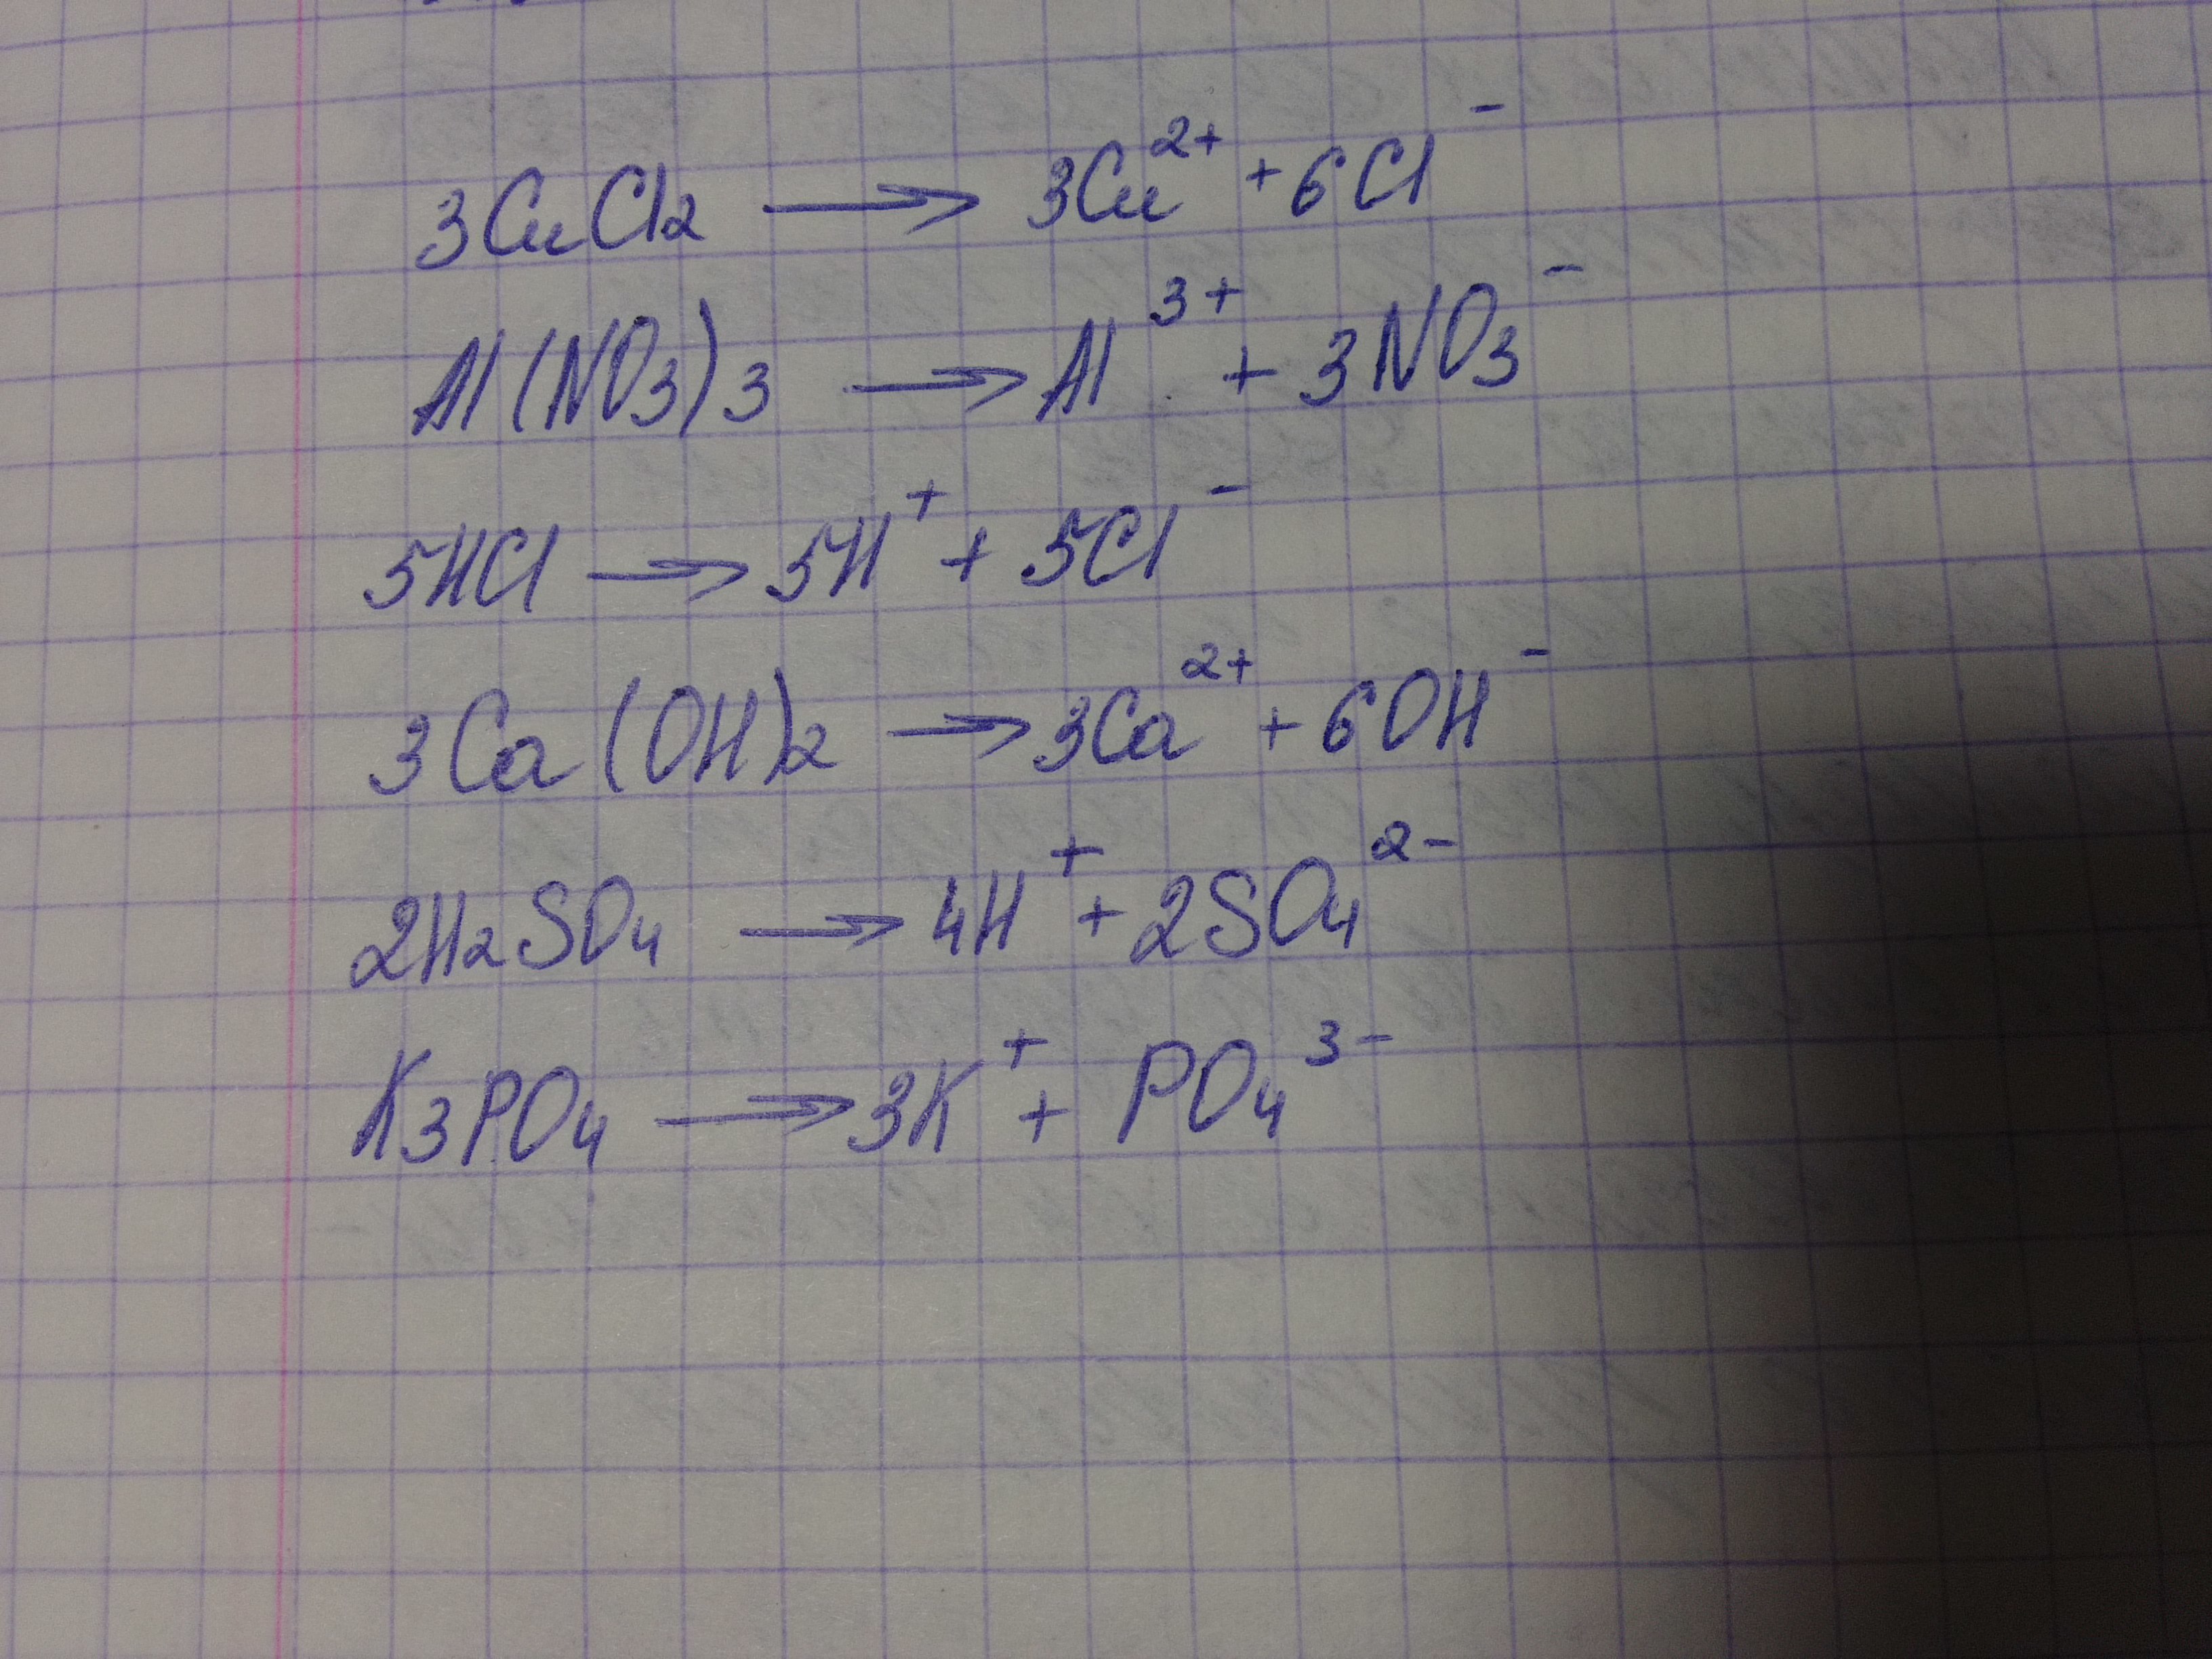 3CuCl₂ → 3Cu²⁺ + 6Cl⁻
Al(NO₃)₃ → Al³⁺ + 3NO₃⁻
5HCl → 5H⁺ + 5Cl⁻
3Ca(OH)₂ → 3Ca²⁺ + 6OH⁻
2H₂SO₄ → 4H⁺ + 2SO₄²⁻
K₃PO₄ → 3K⁺ + PO₄³⁻